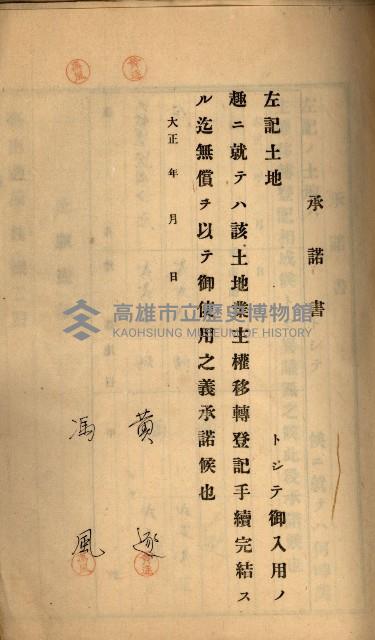 承諾書
左記土地 トシテ御入用ノ
趣ニ就テハ該土地業主權移轉登記手續完結ス
ル迄無償ヲ以テ御使用之義承諾候也
大正 年 月 日
黃 逐
馮 風
高雄市立歷史博物館
KAOHSIUNG MUSEUM OF HISTORY